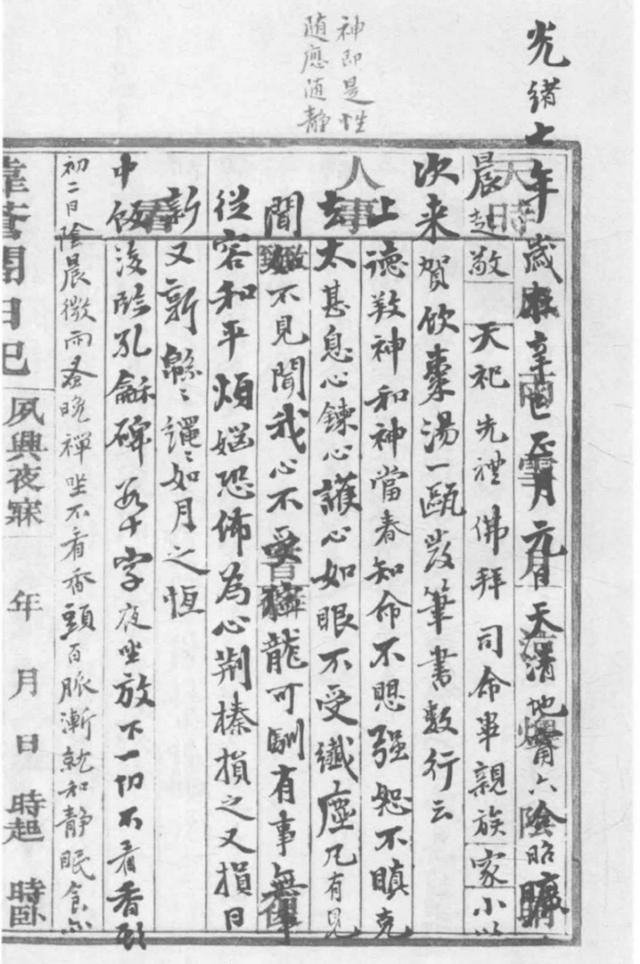 神即是性
随應随静
光緒七年歲在辛巳正月元日天清地甯六陰昭曠
晨起敬天祀先禮佛拜司命畢親族家小以
次来賀飲棗湯一甌發筆書數行云
上德敦神和神當春知命不思强恕不瞋克
去太甚息心鍊心護心如眼不受纖塵凡有見
聞如不見聞我心不受獰龍可馴有事無事
從容和平煩惱恐怖為心荆榛損之又損日
新又新緜緜繩繩如月之恆
中飯後臨孔龢碑若干字夜坐放下一切不看香頭
初二日陰晨微雨蚤晚禪坐不看香頭百脈漸就和静眠食亦
日記
夙興夜寐
年
月
日
時起
時臥
天時
人事